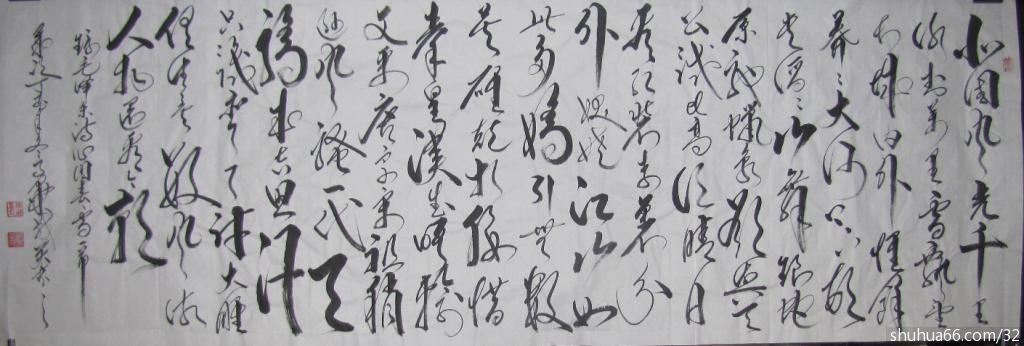 北国风光千里
冰封万里雪飘望
长城内外惟余
莽莽大河上下顿
失滔滔山舞银蛇
原驰蜡象欲与天
公试比高须晴日
看红装素裹分
外妖娆江山如
此多娇引无数
英雄竞折腰惜
秦皇汉武略输
文采唐宗宋祖稍
逊风骚一代天
骄成吉思汗
只识弯弓射大雕
俱往矣数风流
人物还看今朝
沁园春雪一
shuhua66.com/32